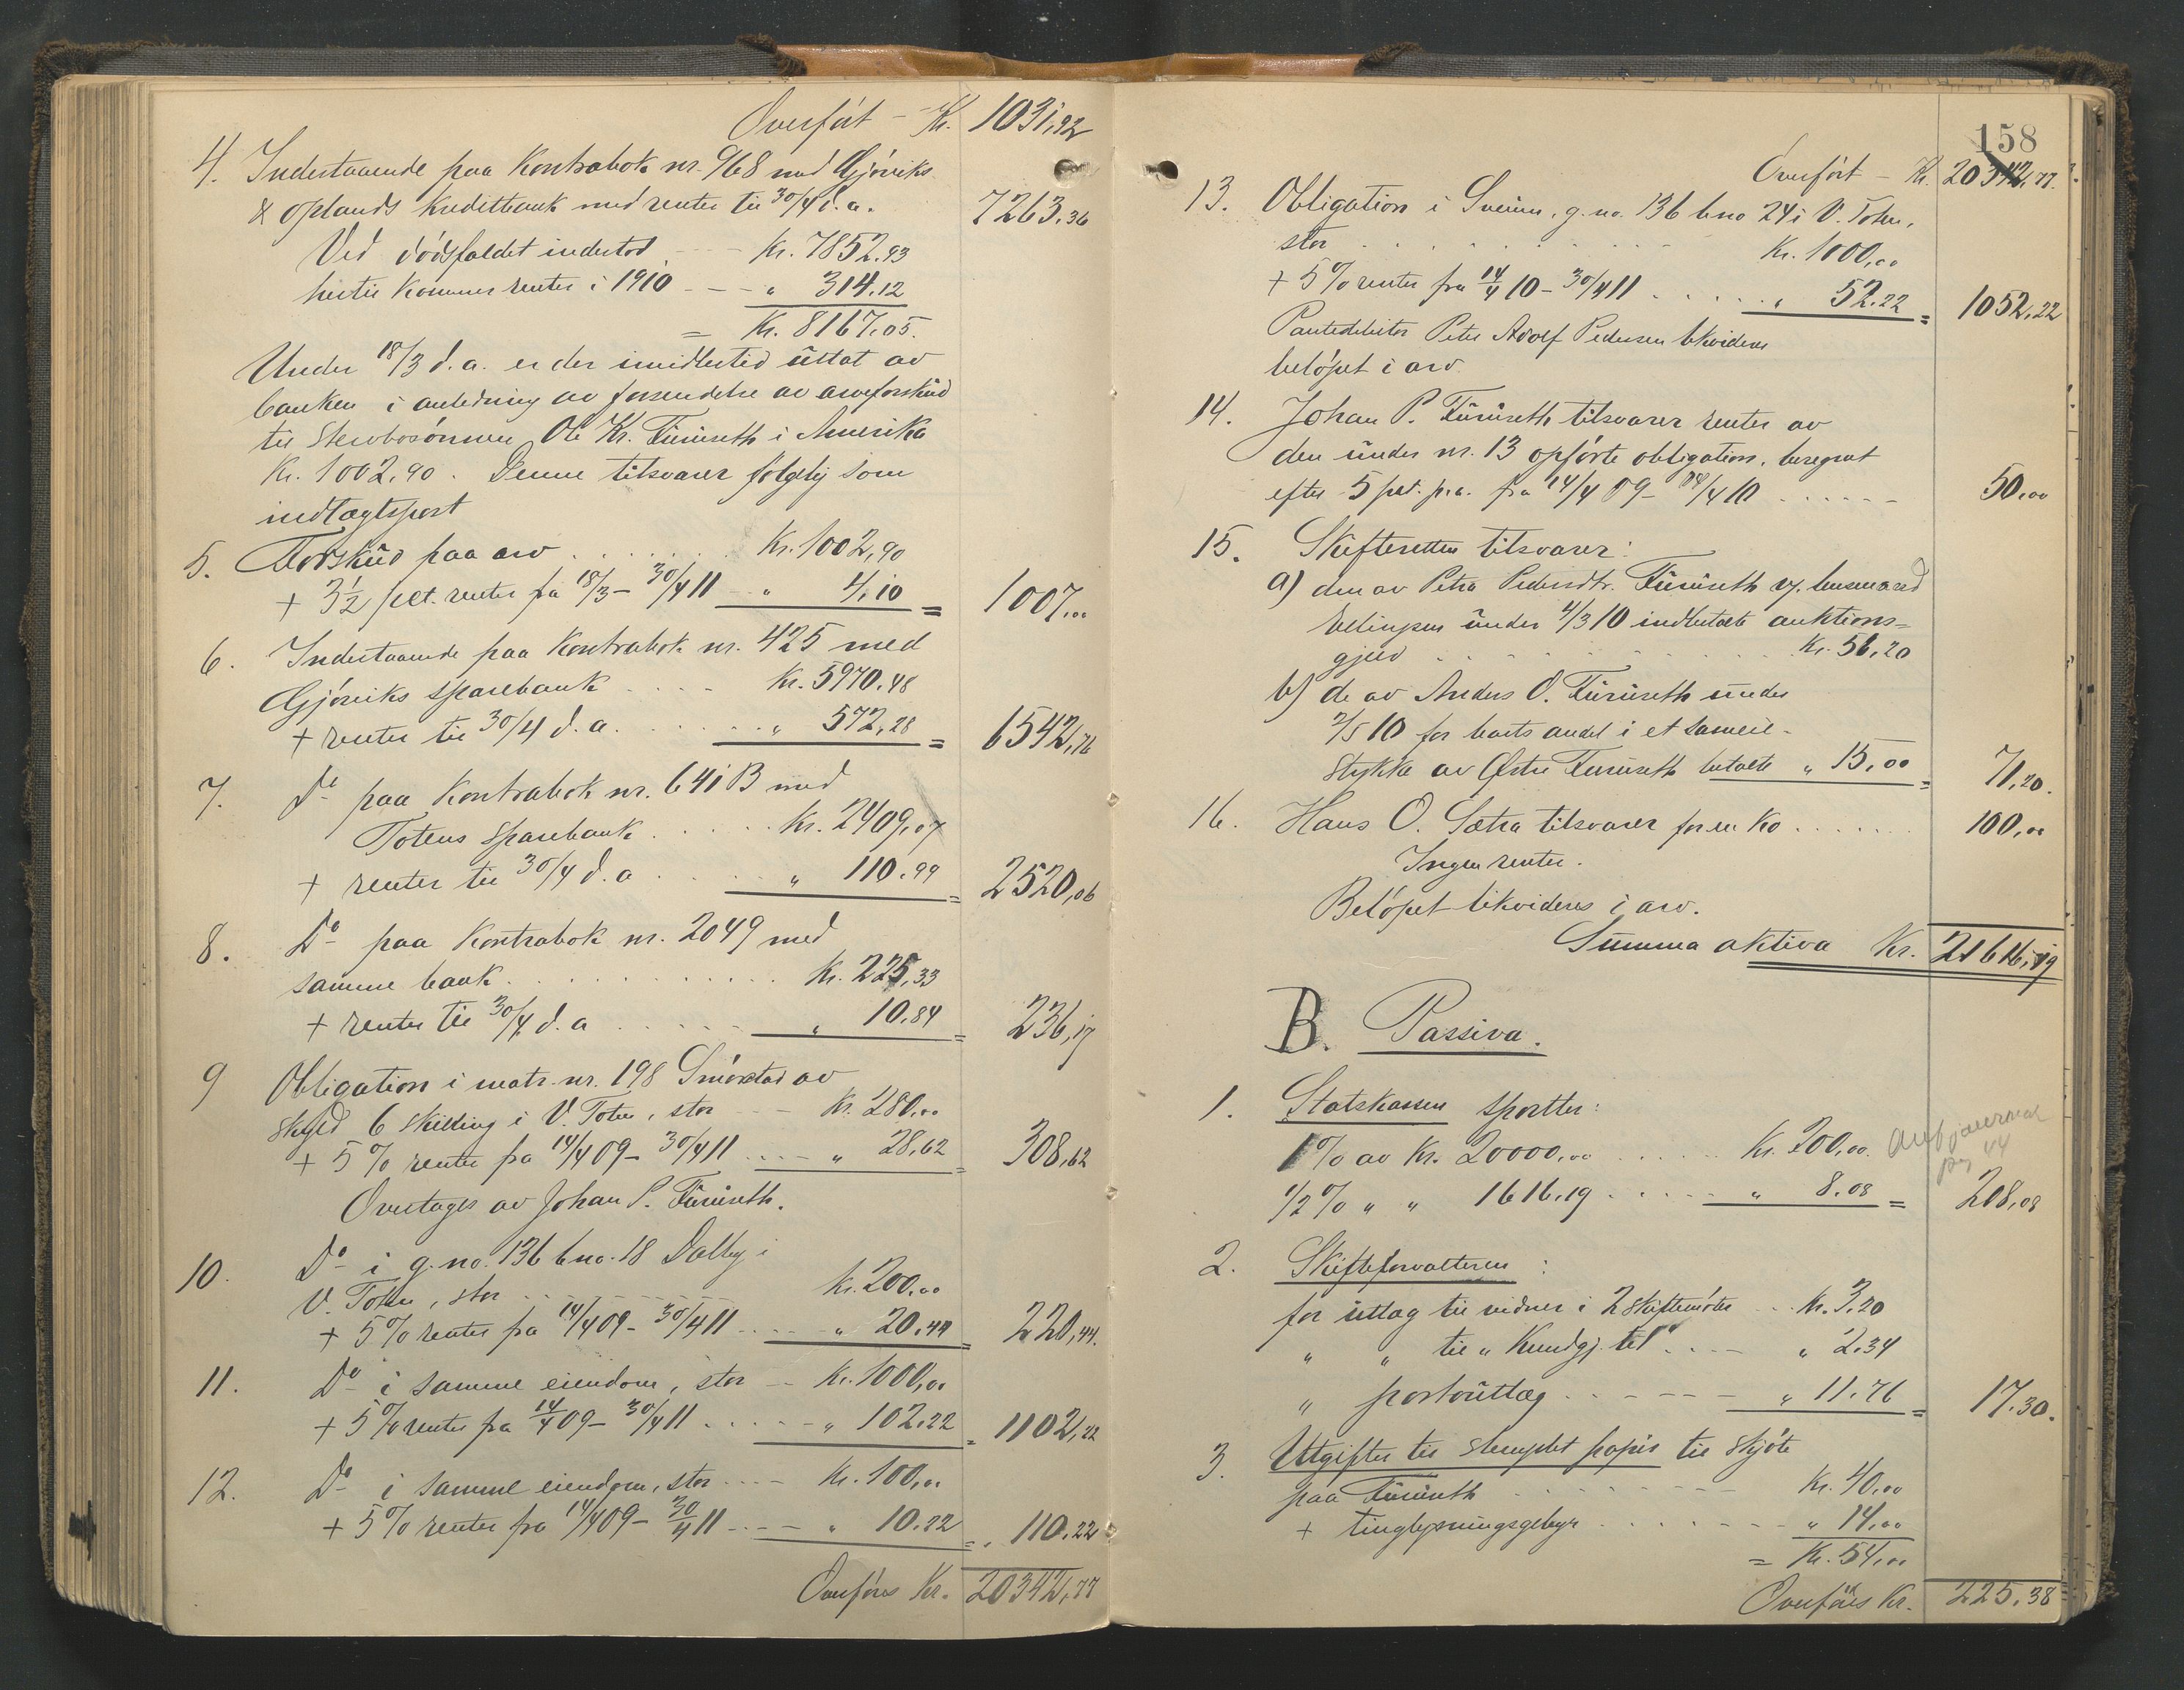 Overført - Kr. 1031,92
4. Indestaaende paa Kontrabok nr. 968 med Gjøviks
& Oplands Kreditbank med renter til 30/4 d.a. 7263.36
Ved dødsfaldet indestod - - Kr. 7852.93
hertil kommer renter i 1910 - - - " 314.12
= Kr. 8167.05.
Under 18/3 d.a. er der imidlertid uttat av
banken i anledning av forsendelse av arveforskud
til Stervbosønnen Ole Kr. Furuseth i Amerika
Kr. 1002,90. Denne tilsvarer følgelig som
indtægtspost
5. Forskud paa arv . . . . . . . Kr. 1002,90
+ 3½ pct. renter fra 18/3 - 30/4 11 - " 4,10 = 1007,00
6. Indestaaende paa Kontrabok nr. 425 med
Gjøviks Sparebank . . . - Kr. 5970.48
+ renter til 30/4 d.a. . . . . . " 572,28 = 6542,76
7. Do paa Kontrabok nr. 641 B med
Totens Sparebank . . . . . Kr. 2409,07
+ renter til 30/4 d.a . . . . " 110.99 = 2520,06
8. Do paa Kontrabok nr. 2049 med
samme bank . . . . . . . . . . Kr. 225,33
+ renter til 30/4 d.a . . . . . " 10.84 = 236,17
9 Obligation i matr. nr. 198 Smørstad av
skyld 6 skilling i V. Toten, stor - - - Kr. 280,00
+ 5 % renter fra 14/4 09 - 30/4 11 . . . - " 28,62 = 308,62
Overtages av Johan P. Furuseth.
10. Do i g.no. 136 bno. 18 Dalby i
V. Toten, stor . . . . . . . Kr. 200,00
+ 5 % renter fra 14/4 09 - 30/4 11 . . . " 20.44 = 220,44.
11. Do i samme eiendom, stor - - Kr. 1000,00
+ 5 % renter fra 14/4 09 - 30/4 11 . . . . - " 102.22 = 1102,22
12. Do i samme eiendom, stor . . . - Kr. 100,00
+ 5 % renter fra 14/4 09 - 30/4 11 - . . . - " 10.22 = 110.22
Overføres Kr. 20342,77
158
Overført - Kr. 20342,77.
13. Obligation i Sveum, g.no. 136 bno 24 i V. Toten,
stor . . . . . . . . . . Kr. 1000,00
+ 5 % renter fra 14/4 10 - 30/4 11 . . . . . " 52.22 = 1052,22
Pantedebitor Peter Adolf Pedersen likviderer
beløpet i arv.
14. Johan P. Furuseth tilsvarer renter av
den under nr. 13 opførte obligation, beregnet
efter 5 pct. p.a. fra 14/4 09 - 14/4 10 . . . . . . - 50,00
15. Skifteretten tilsvarer:
a) den av Petra Pedersdtr. Furuseth v/
Ellingsen under 4/3 10 indbetalte auktions=
gjeld . . . . . . . . . . Kr. 56,20
b) de av Anders O. Furuseth under
2/5 10 for boets andel i et sameie-
stykke av Østre Furuseth betalte " 15,00 = 71,20.
16. Hans O. Sætra tilsvarer for en ko . . . . . . 100,00
Ingen renter.
Beløpet likvideres i arv.
Summa aktiva Kr. 21616,19
B. Passiva.
1. Statskassen sportler:
1 % av Kr. 20000,00 . . . . . . Kr. 200,00.
1/2 % " " 1616.19 . . . . . - " 8.08 = 208,08
2. Skifteforvalteren :
for utlæg til vidner i 2 skiftemøter . . Kr. 3.20
" " til "Kundgj. tid" . . . - " 2.34
" portoutlæg . . - - - - " 11.76 = 17.30.
3. Utgifter til stemplet papir til skjøte
paa Furuseth . . . . . . . . Kr. 40.00
+ tinglysningsgebyr . . . . . . . . - " 14,00
= Kr. 54,00
Overføres Kr. 225.38